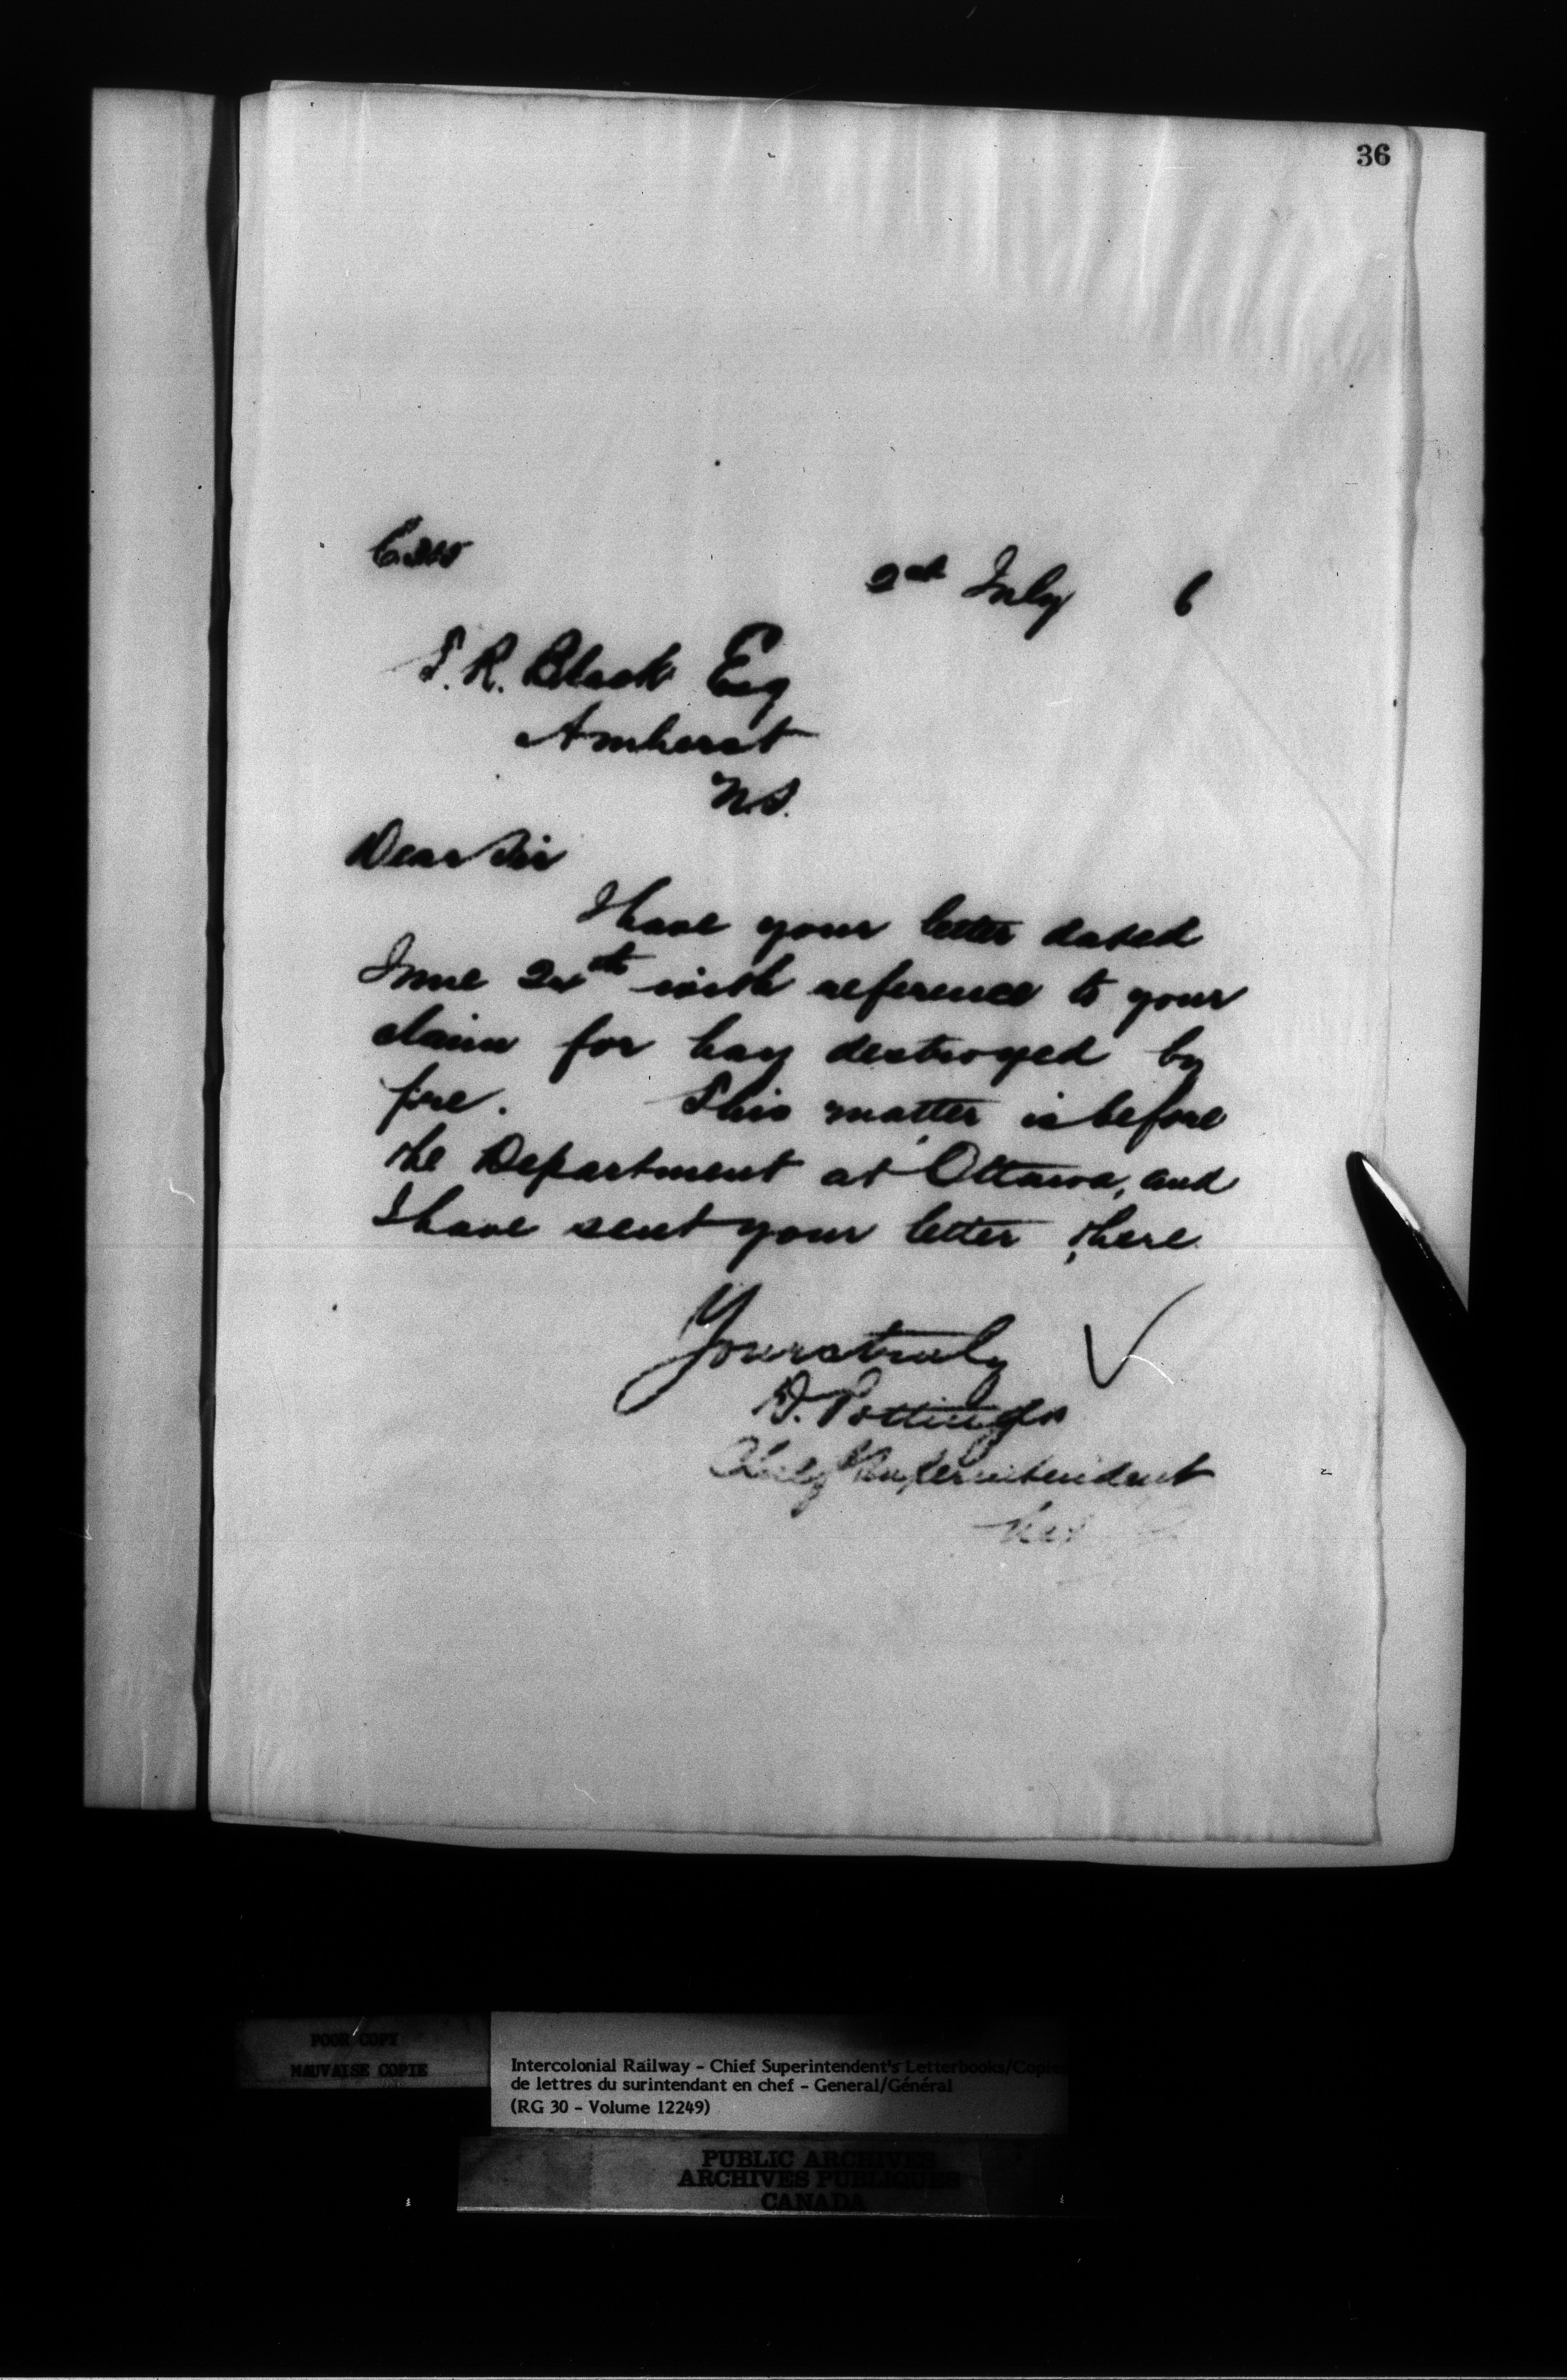 36
2nd July 6
T. R. Black Esq
Amherst
N.S.
Dear Sir
I have your letter dated
June 24th with reference to your
claim for hay destroyed by
fire. This matter is before
the Department at Ottawa, and
I have sent your letter there.
Yours truly
D. Pottinger
Chief Superintendent
POOR COPY
MAUVAISE COPIE
Intercolonial Railway - Chief Superintendent's Letterbooks/Copies
de lettres du surintendant en chef - General/Général
(RG 30 - Volume 12249)
PUBLIC ARCHIVES
ARCHIVES PUBLIQUES
CANADA